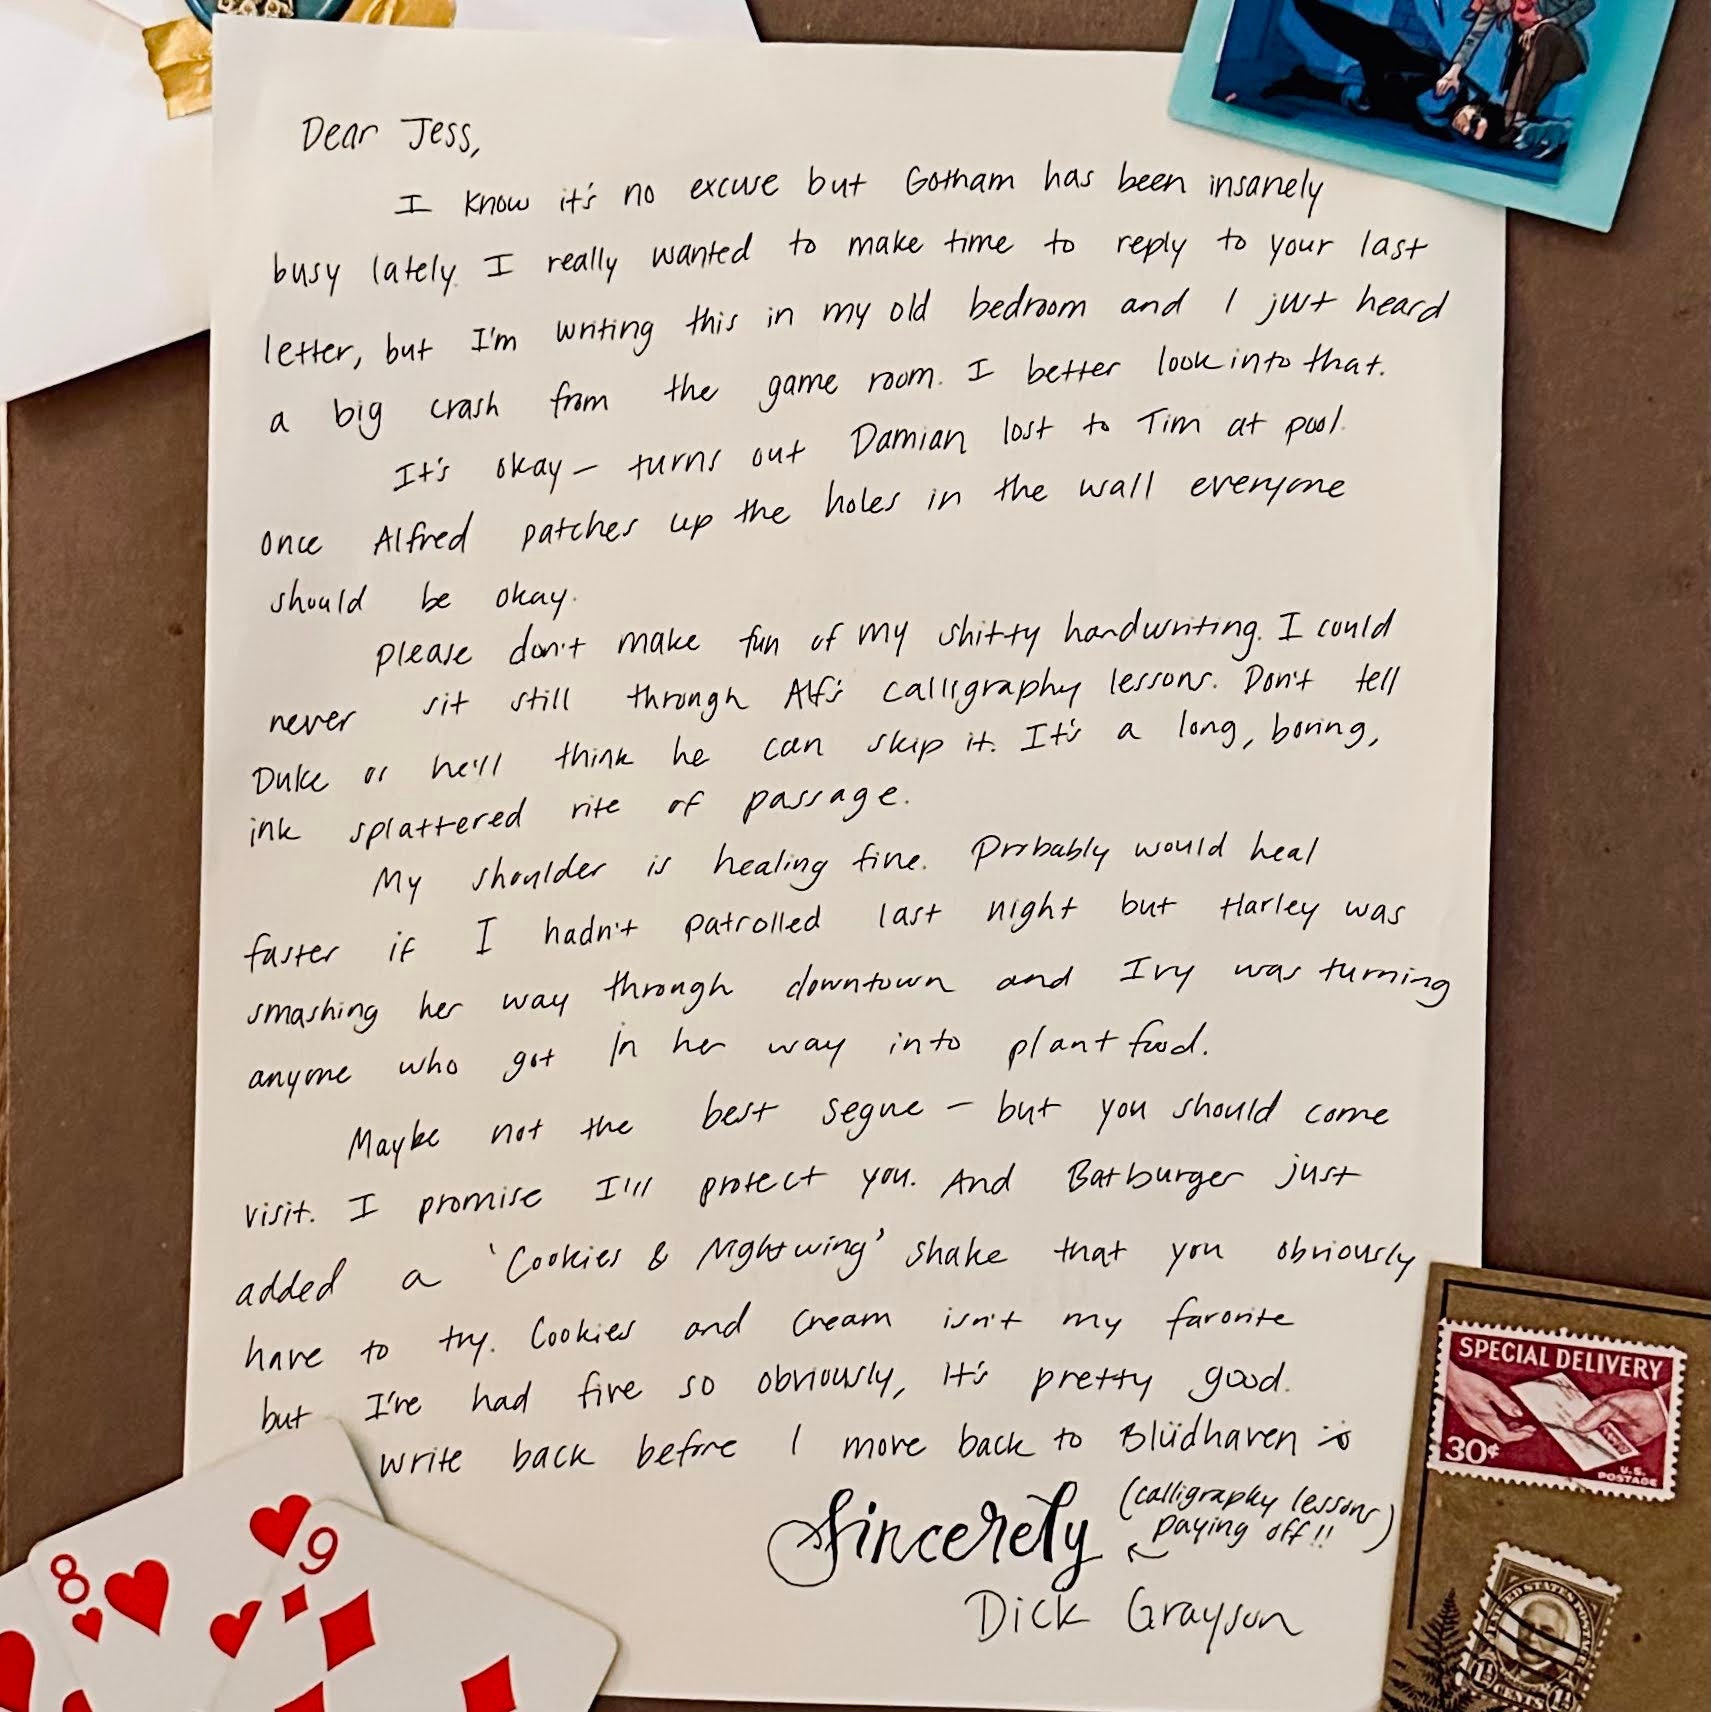 Dear Jess,
I know it's no excuse but Gotham has been insanely
busy lately. I really wanted to make time to reply to your last
letter, but I'm writing this in my old bedroom and I just heard
a big crash from the game room. I better look into that.
It's okay — turns out Damian lost to Tim at pool.
Once Alfred patches up the holes in the wall everyone
should be okay.
Please don't make fun of my shitty handwriting. I could
never sit still through Alf's calligraphy lessons. Don't tell
Duke or he'll think he can skip it. It's a long, boring,
ink splattered rite of passage.
My shoulder is healing fine. Probably would heal
faster if I hadn't patrolled last night but Harley was
smashing her way through downtown and Ivy was turning
anyone who got in her way into plant food.
Maybe not the best segue — but you should come
visit. I promise I'll protect you. And Batburger just
added a 'Cookies & Nightwing' shake that you obviously
have to try. Cookies and Cream isn't my favorite
but I've had five so obviously, it's pretty good.
Write back before I move back to Blüdhaven
Sincerely (calligraphy lessons
paying off!!)
Dick Grayson
8
9
SPECIAL DELIVERY
30¢
U.S.
POSTAGE